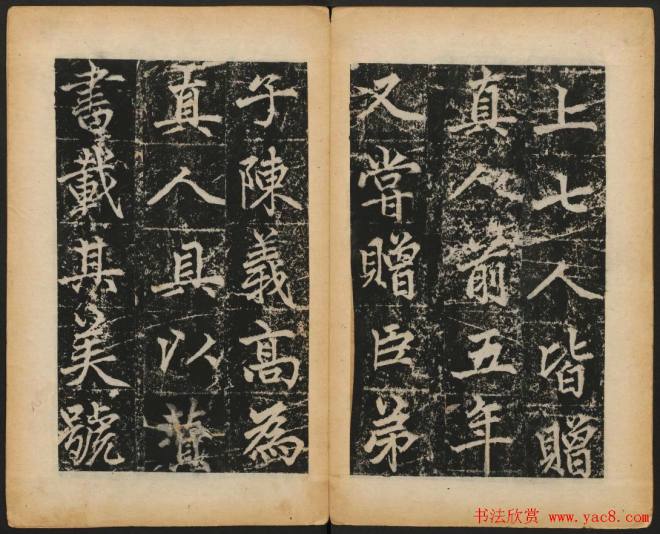 上七人皆贈
真人前五年
又嘗贈臣弟
子陳義高為
真人具以蓂
書載其美號
书法欣赏 www.yac8.com